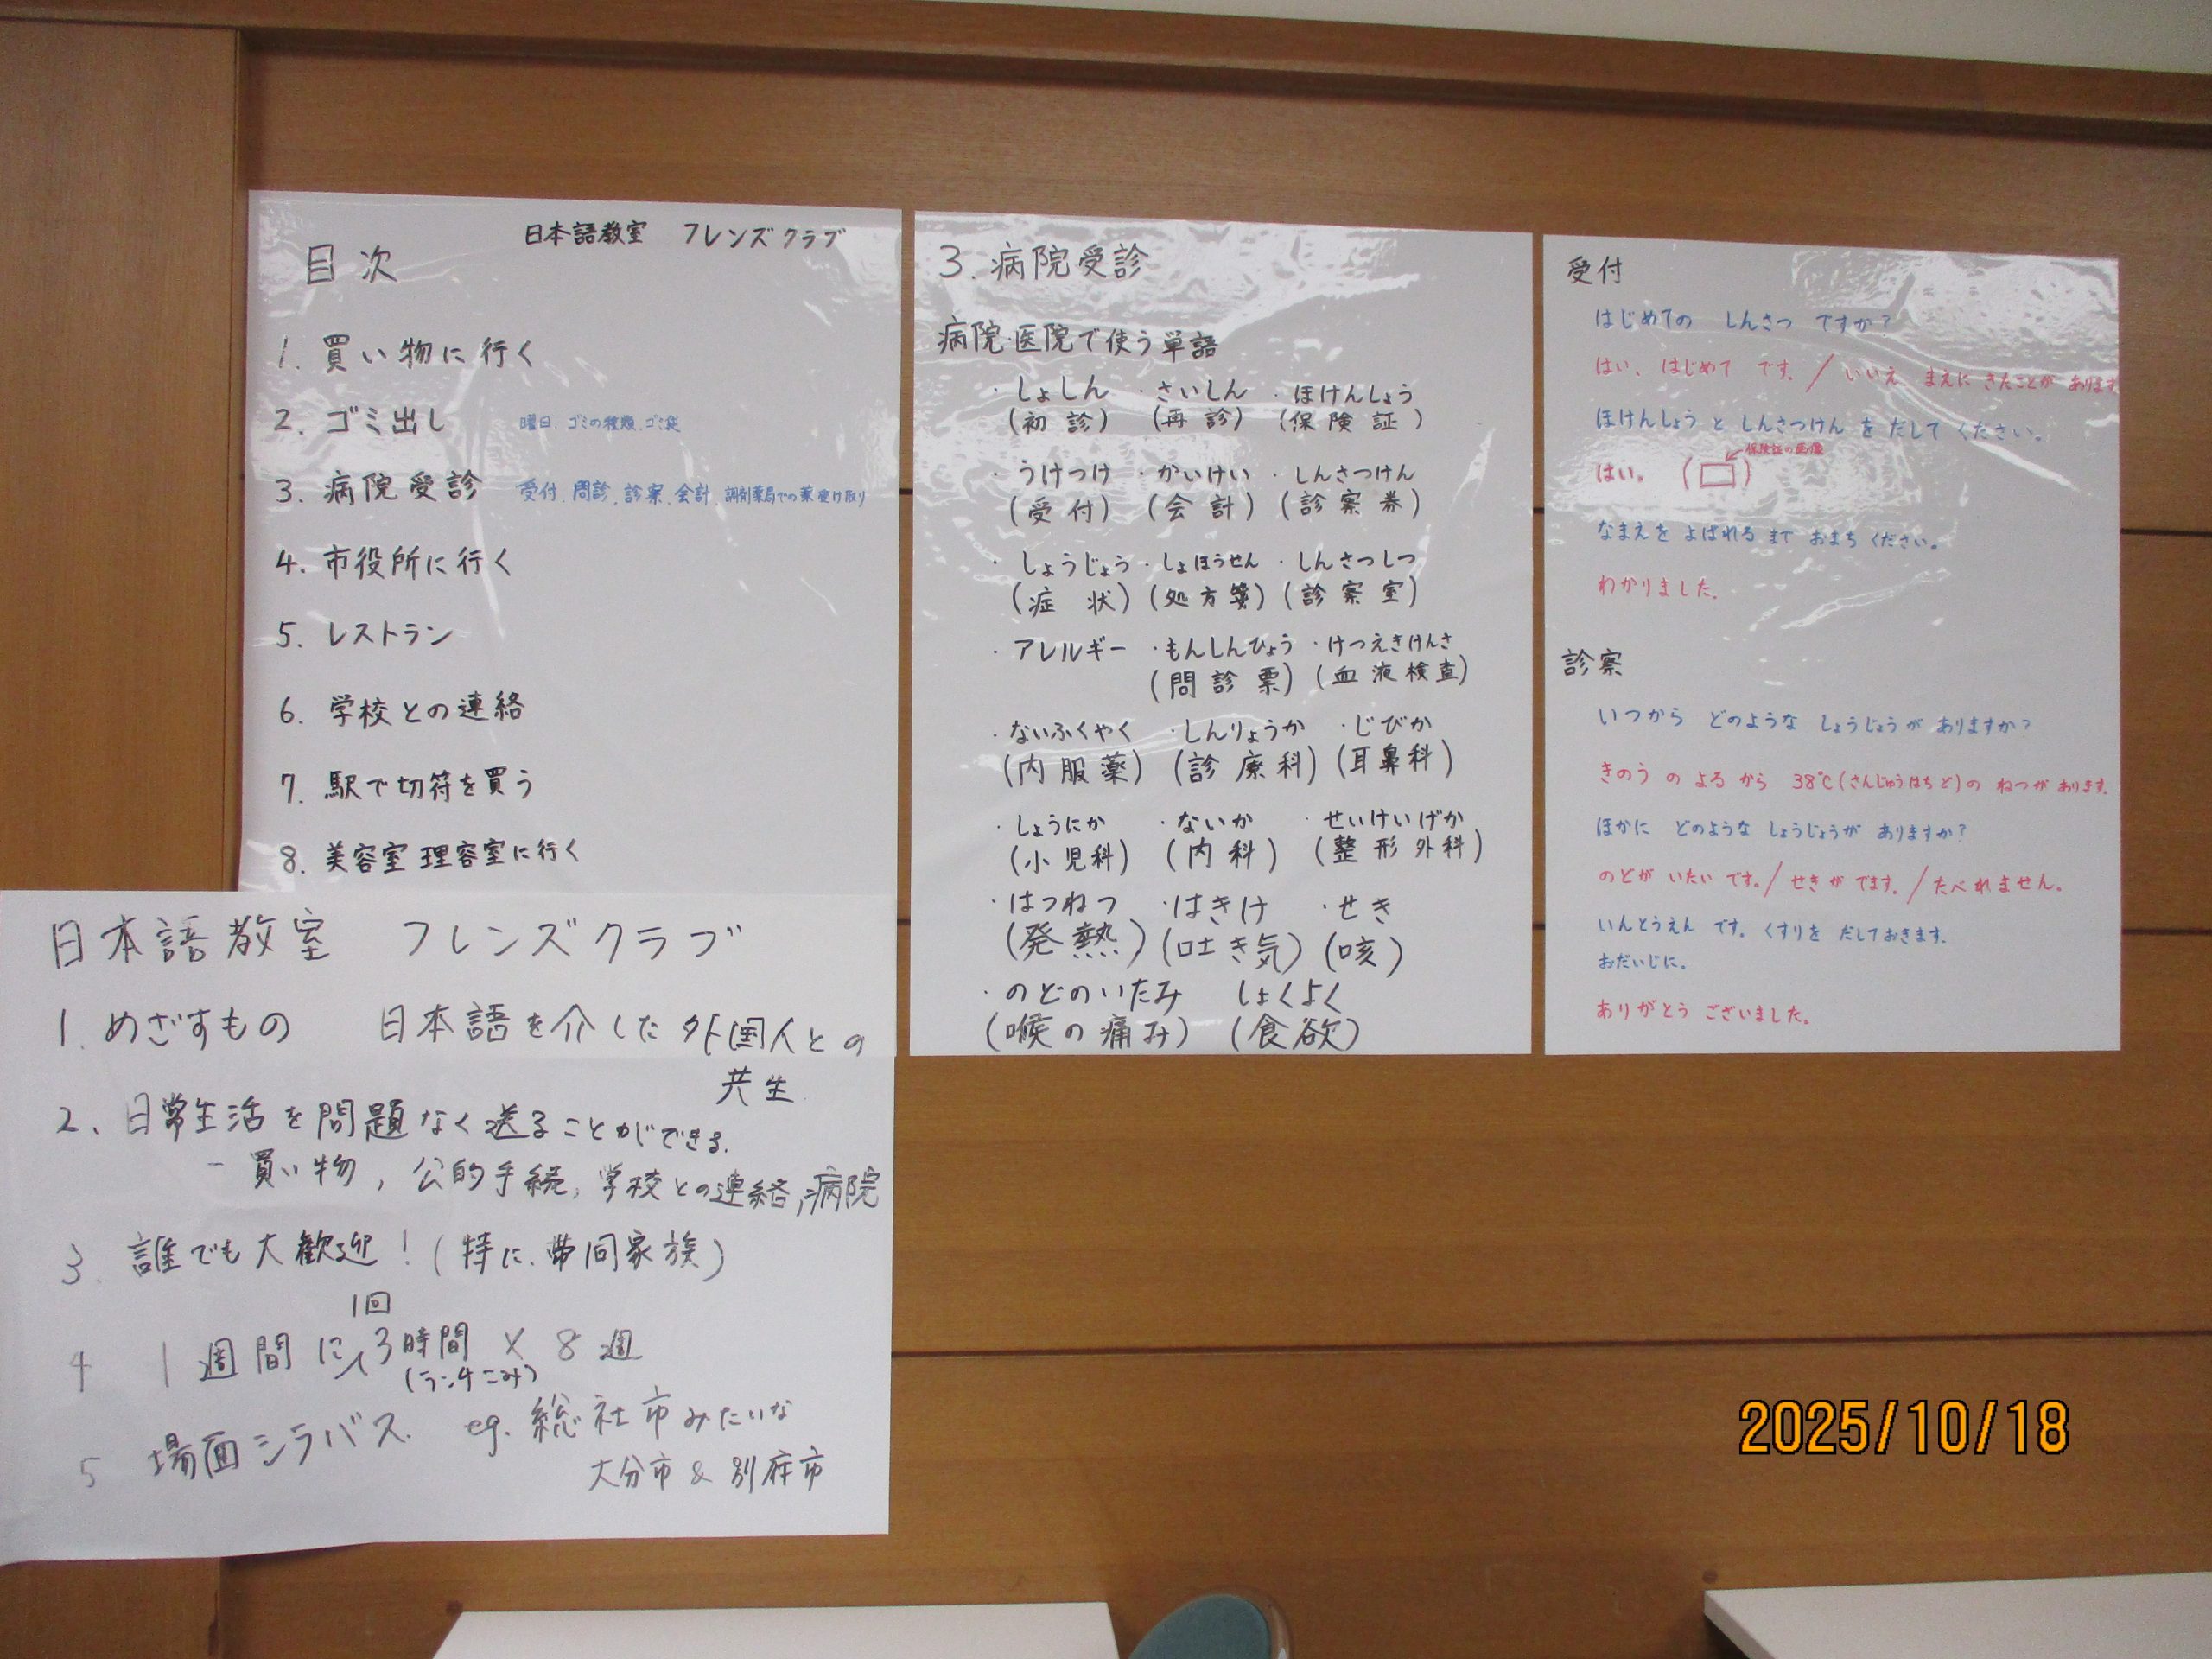 日本語教室 フレンズクラブ
目次
1. 買い物に行く
2. ゴミ出し 曜日、ゴミの種類、ゴミ袋
3. 病院受診 受付、問診、診察、会計、調剤薬局での薬受け取り
4. 市役所に行く
5. レストラン
6. 学校との連絡
7. 駅で切符を買う
8. 美容室 理容室に行く
日本語教室 フレンズクラブ
1. めざすもの 日本語を介した外国人との
共生
2、日常生活を問題なく送ることができる.
- 買い物, 公的手続, 学校との連絡, 病院
3. 誰でも大歓迎!(特に、帯同家族)
1回
4 1週間に 3時間 × 8週
(ランチこみ)
5 場面シラバス. eg. 総社市みたいな
大分市 & 別府市
3. 病院受診
病院・医院で使う単語
・しょしん ・さいしん ・ほけんしょう
(初診) (再診) (保険証)
・うけつけ ・かいけい ・しんさつけん
(受付) (会計) (診察券)
・しょうじょう ・しょほうせん ・しんさつしつ
(症状) (処方箋) (診察室)
・アレルギー ・もんしんひょう ・けつえきけんさ
(問診票) (血液検査)
・ないふくやく ・しんりょうか ・じびか
(内服薬) (診療科) (耳鼻科)
・しょうにか ・ないか ・せいけいげか
(小児科) (内科) (整形外科)
・はつねつ ・はきけ ・せき
(発熱) (吐き気) (咳)
・のどのいたみ しょくよく
(喉の痛み) (食欲)
受付
はじめての しんさつ ですか?
はい、はじめて です。/ いいえ、まえに きたことが あります
ほけんしょう と しんさつけん を だして ください。
保険証の画像
はい。 ( )
なまえを よばれる まで おまち ください。
わかりました。
診察
いつから どのような しょうじょうが ありますか?
きのう の よる から 38℃(さんじゅうはちど)の ねつが あります。
ほかに どのような しょうじょうが ありますか?
のどが いたい です。/ せきが でます。/ たべれません。
いんとうえん です。くすりを だしておきます。
おだいじに。
ありがとう ございました。
2025/10/18